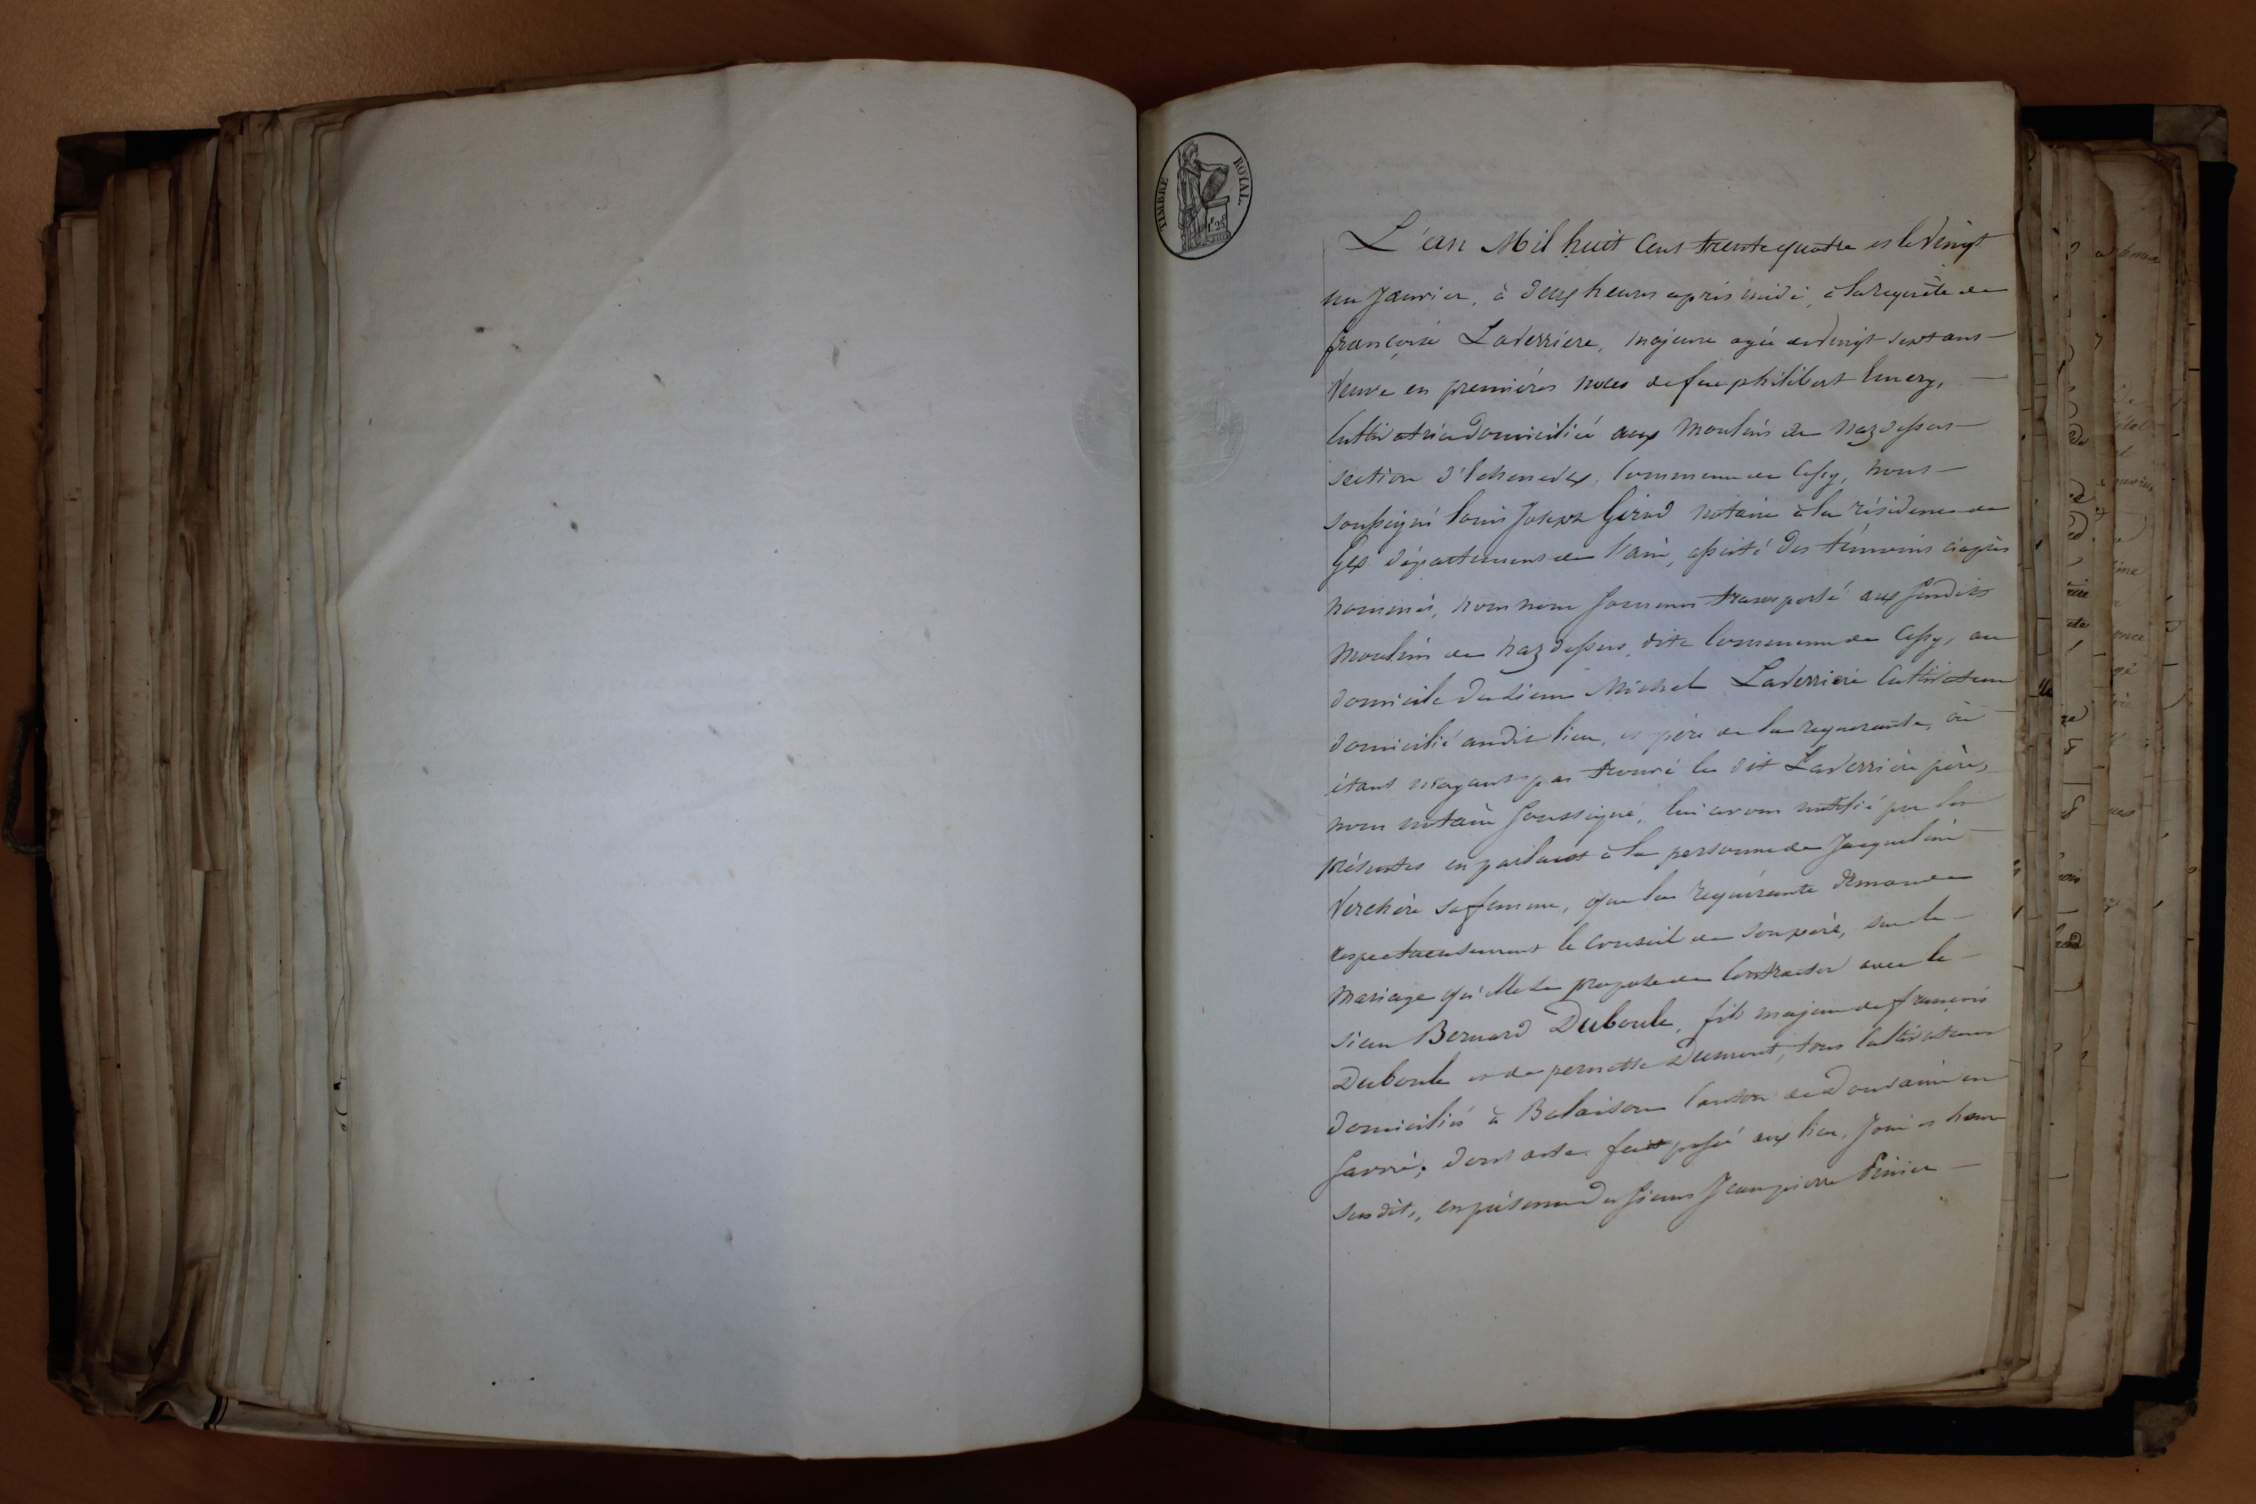 TIMBRE ROYAL
1f 25
L'an Mil huit Cent trente quatre et le vingt
un Janvier, à deux heures après midi, à la requête de
françoise Laverriere, majeure agée de vingt sept ans
Veuve en premières noces de feu philibert Emery,
Cultivatrice domiciliée aux Moulins de Naz dessus
section d'Echenevex, Commune de Cessy, nous
soussigné Louis Joseph Girod notaire à la résidence de
Gex département de l'ain, assisté des témoins ciaprès
nommés, nous nous sommes transporté aux susdits
Moulins de Naz dessus, dite Commune de Cessy, au
domicile du sieur Michel Laverriere Cultivateur
domicilié audit lieu, et père de la requerante, où
étant n'ayant pas trouvé le dit Laverriere père,
nous notaire soussigné, lui avons notifié par les
présentes en parlant à la personne de Jacqueline
Verchère sa femme, que la requérante demande
respectueusement le conseil de son père, sur le
Mariage qu'elle se propose de Contracter avec le
sieur Bernard Duboule, fils majeur de françois
Duboule et de pernette Dumont, tous Cultivateurs
domiciliés à Balaison Canton de Douvaine en
Savoie; dont acte fait et passé aux lieu, Jour et heure
susdits, en présence des sieurs Jean pierre